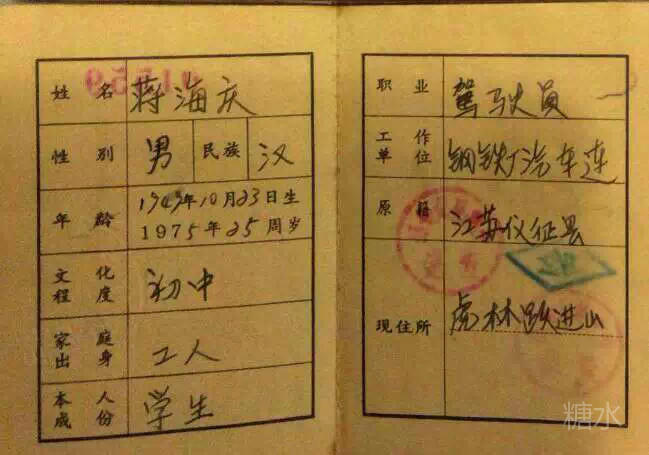 姓名 蒋海庆
性别 男 民族 汉
年龄 1949年10月23日生
1975年25周岁
文化程度 初中
家庭出身 工人
本人成份 学生
职业 驾驶员
工作单位 钢铁厂汽车连
原籍 江苏仪征县
现住所 虎林跃进山
糖水